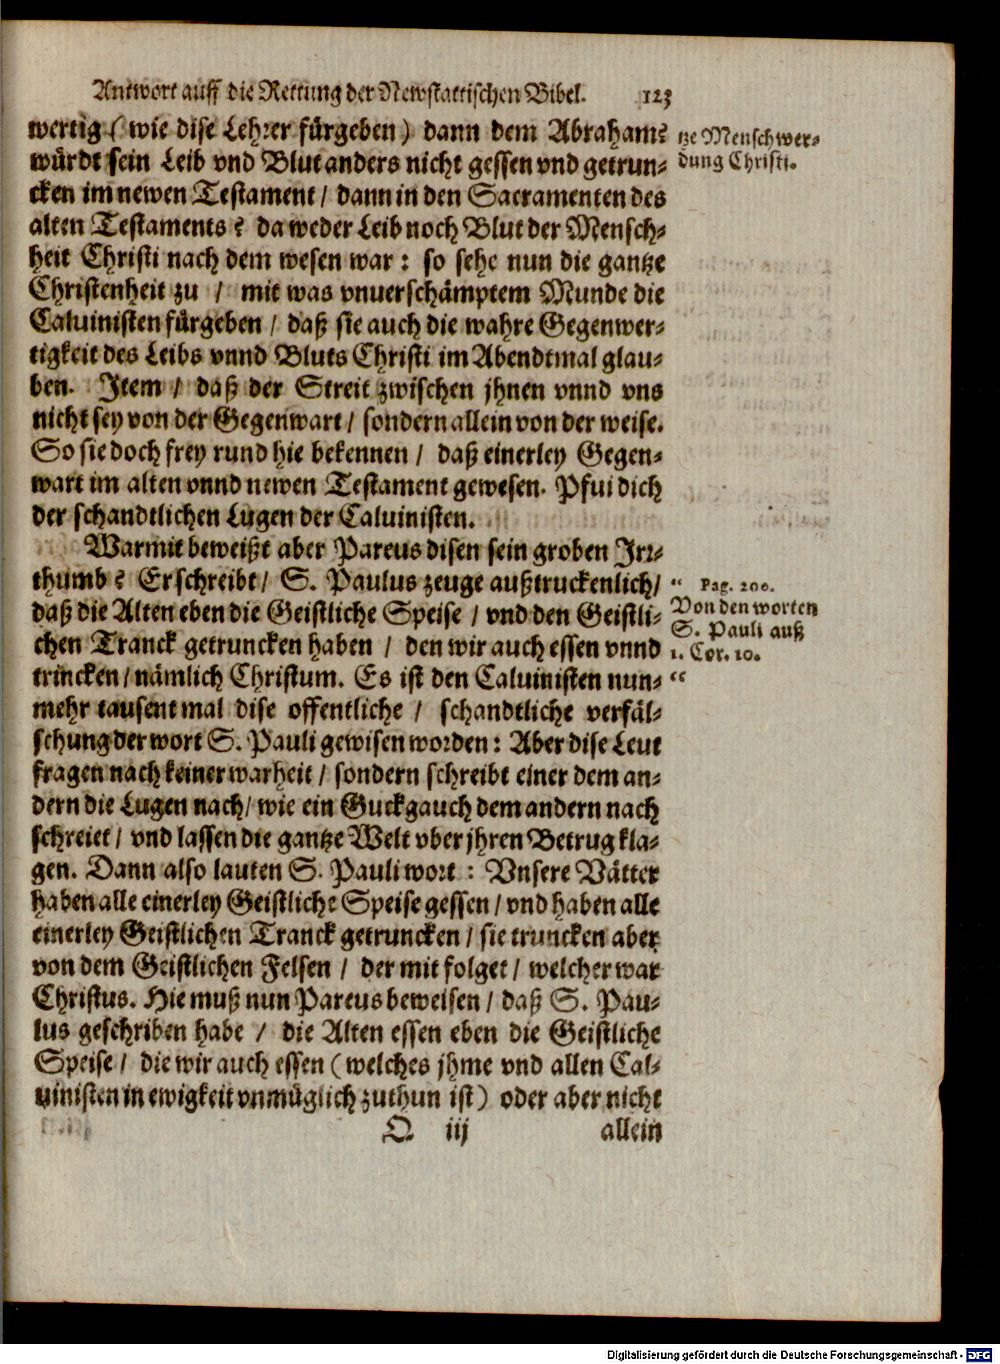 Antwort auff die Rettung der Newstattischen Bibel. 123
wertig (wie dise Lehrer fürgeben) dann dem Abraham?
würdt sein Leib vnd Blut anders nicht gessen vnd getrun-
cken im newen Testament / dann in den Sacramenten des
alten Testaments? da weder Leib noch Blut der Mensch-
heit Christi nach dem wesen war: so sehe nun die gantze
Christenheit zu / mit was vnuerschämptem Munde die
Caluinisten fürgeben / daß sie auch die wahre Gegenwer-
tigkeit des Leibs vnnd Bluts Christi im Abendtmal glau-
ben. Item / daß der Streit zwischen jhnen vnnd vns
nicht sey von der Gegenwart / sondern allein von der weise.
So sie doch frey rund hie bekennen / daß einerley Gegen-
wart im alten vnnd newen Testament gewesen. Pfui dich
der schandtlichen Lugen der Caluinisten.
Warmit beweißt aber Pareus disen sein groben Irr-
thumb? Er schreibt / S. Paulus zeuge außtruckenlich /
daß die Alten eben die Geistliche Speise / vnd den Geistli-
chen Tranck getruncken haben / den wir auch essen vnnd
trincken / nämlich Christum. Es ist den Caluinisten nun-
mehr tausent mal dise offentliche / schandtliche verfäl-
schung der wort S. Pauli gewisen worden: Aber dise Leut
fragen nach keiner warheit / sondern schreibt einer dem an-
dern die Lugen nach / wie ein Guckgauch dem andern nach
schreiet / vnd lassen die gantze Welt vber jhren Betrug kla-
gen. Dann also lauten S. Pauli wort: Vnsere Vätter
haben alle einerley Geistliche Speise gessen / vnd haben alle
einerley Geistlichen Tranck getruncken / sie truncken aber
von dem Geistlichen Felsen / der mit folget / welcher war
Christus. Hie muß nun Pareus beweisen / daß S. Pau-
lus geschriben habe / die Alten essen eben die Geistliche
Speise / die wir auch essen (welches jhme vnd allen Cal-
uinisten in ewigkeit vnmüglich zuthun ist) oder aber nicht
Q iij allein
tze Menschwer-
dung Christi.
“ Pag. 200.
Von den worten
S. Pauli auß
1. Cor. 10.
“
Digitalisierung gefördert durch die Deutsche Forschungsgemeinschaft - DFG